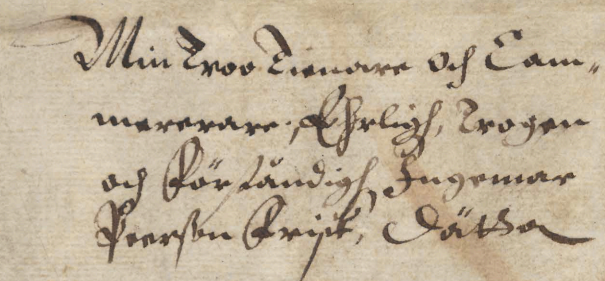 Min Troo Tienare Och Cam-
mererare, Ehrligh, Trogen
och förståndigh Ingemar
Peerson Frisk, Dätta